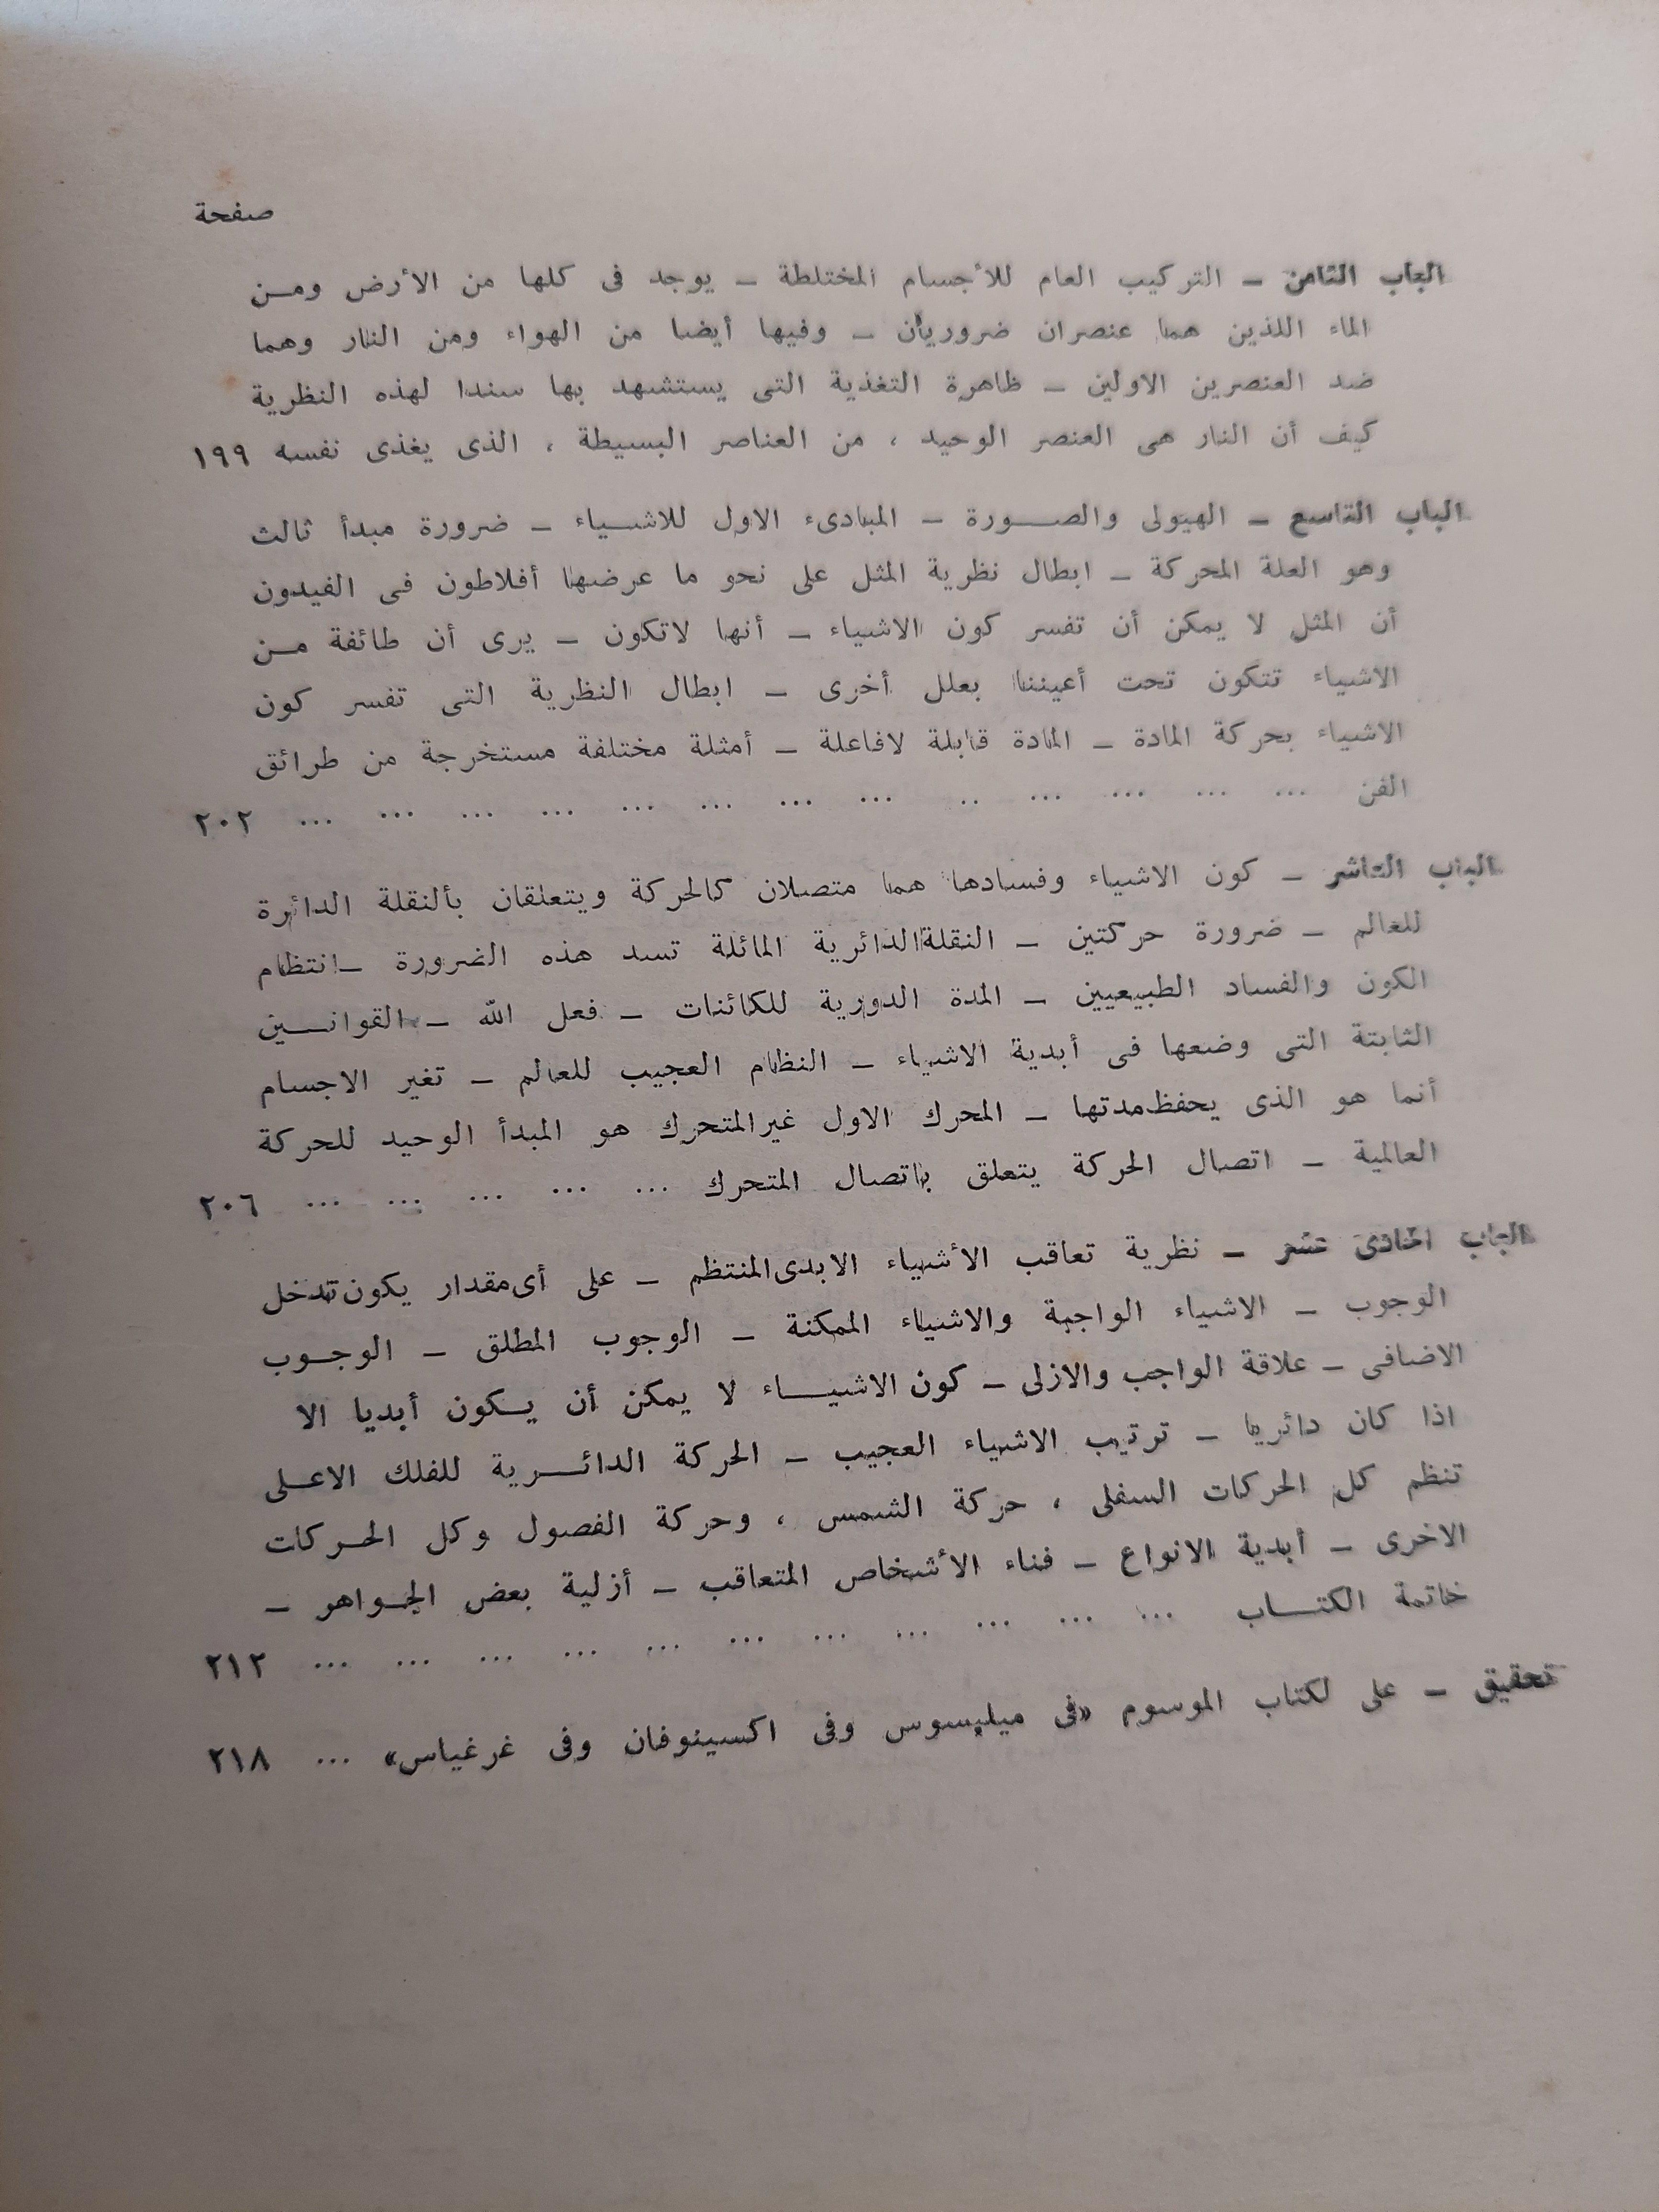 صفحة
الباب الثامن – التركيب العام للأجسام المختلطة – يوجد فى كلها من الأرض ومن
الماء اللذين هما عنصران ضروريان – وفيها أيضا من الهواء ومن النار وهما
ضد العنصرين الاولين – ظاهرة التغذية التى يستشهد بها سندا لهذه النظرية
كيف أن النار هى العنصر الوحيد ، من العناصر البسيطة ، الذى يغذى نفسه ١٩٩
الباب التاسع – الهيولى والصورة – المبادىء الاول للاشياء – ضرورة مبدأ ثالث
وهو العلة المحركة – ابطال نظرية المثل على نحو ما عرضها أفلاطون فى الفيدون
أن المثل لا يمكن أن تفسر كون الاشياء – أنها لاتكون – يرى أن طائفة من
الاشياء تتكون تحت أعيننا بعلل أخرى – ابطال النظرية التى تفسر كون
الاشياء بحركة المادة – المادة قابلة لافاعلة – أمثلة مختلفة مستخرجة من طرائق
الفن ... ... ... ... .. ... ... ... ... ... ... ... ... ٢٠٢
الباب العاشر – كون الاشياء وفسادها هما متصلان كالحركة ويتعلقان بألنقلة الدائرة
للعالم – ضرورة حركتين – النقلة الدائرية المائلة تسد هذه الضرورة – انتظام
الكون والفساد الطبيعيين – المدة الدورية للكائنات – فعل الله – القوانين
الثابتة التى وضعها فى أبدية الاشياء – النظام العجيب للعالم – تغير الاجسام
أنما هو الذى يحفظ مدتها – المحرك الاول غير المتحرك هو المبدأ الوحيد للحركة
العالمية – اتصال الحركة يتعلق باتصال المتحرك ... ... ... ... ... ٢٠٦
الباب الحادى عشر – نظرية تعاقب الأشياء الابدى المنتظم – على أى مقدار يكون تدخل
الوجوب – الاشياء الواجبة والاشياء الممكنة – الوجوب المطلق – الوجوب
الاضافى – علاقة الواجب والازلى – كون الاشياء لا يمكن أن يكون أبديا الا
اذا كان دائريا – ترتيب الاشياء العجيب – الحركة الدائرية للفلك الاعلى
تنظم كل الحركات السفلى ، حركة الشمس ، وحركة الفصول وكل الحركات
الاخرى – أبدية الانواع – فناء الأشخاص المتعاقب – أزلية بعض الجواهو –
خاتمة الكتاب ... ... ... ... ... ... ... ... ... ... ... ٢١٢
تحقيق – على لكتاب الموسوم «فى ميليسوس وفى اكسينوفان وفى غرغياس» ... ٢١٨